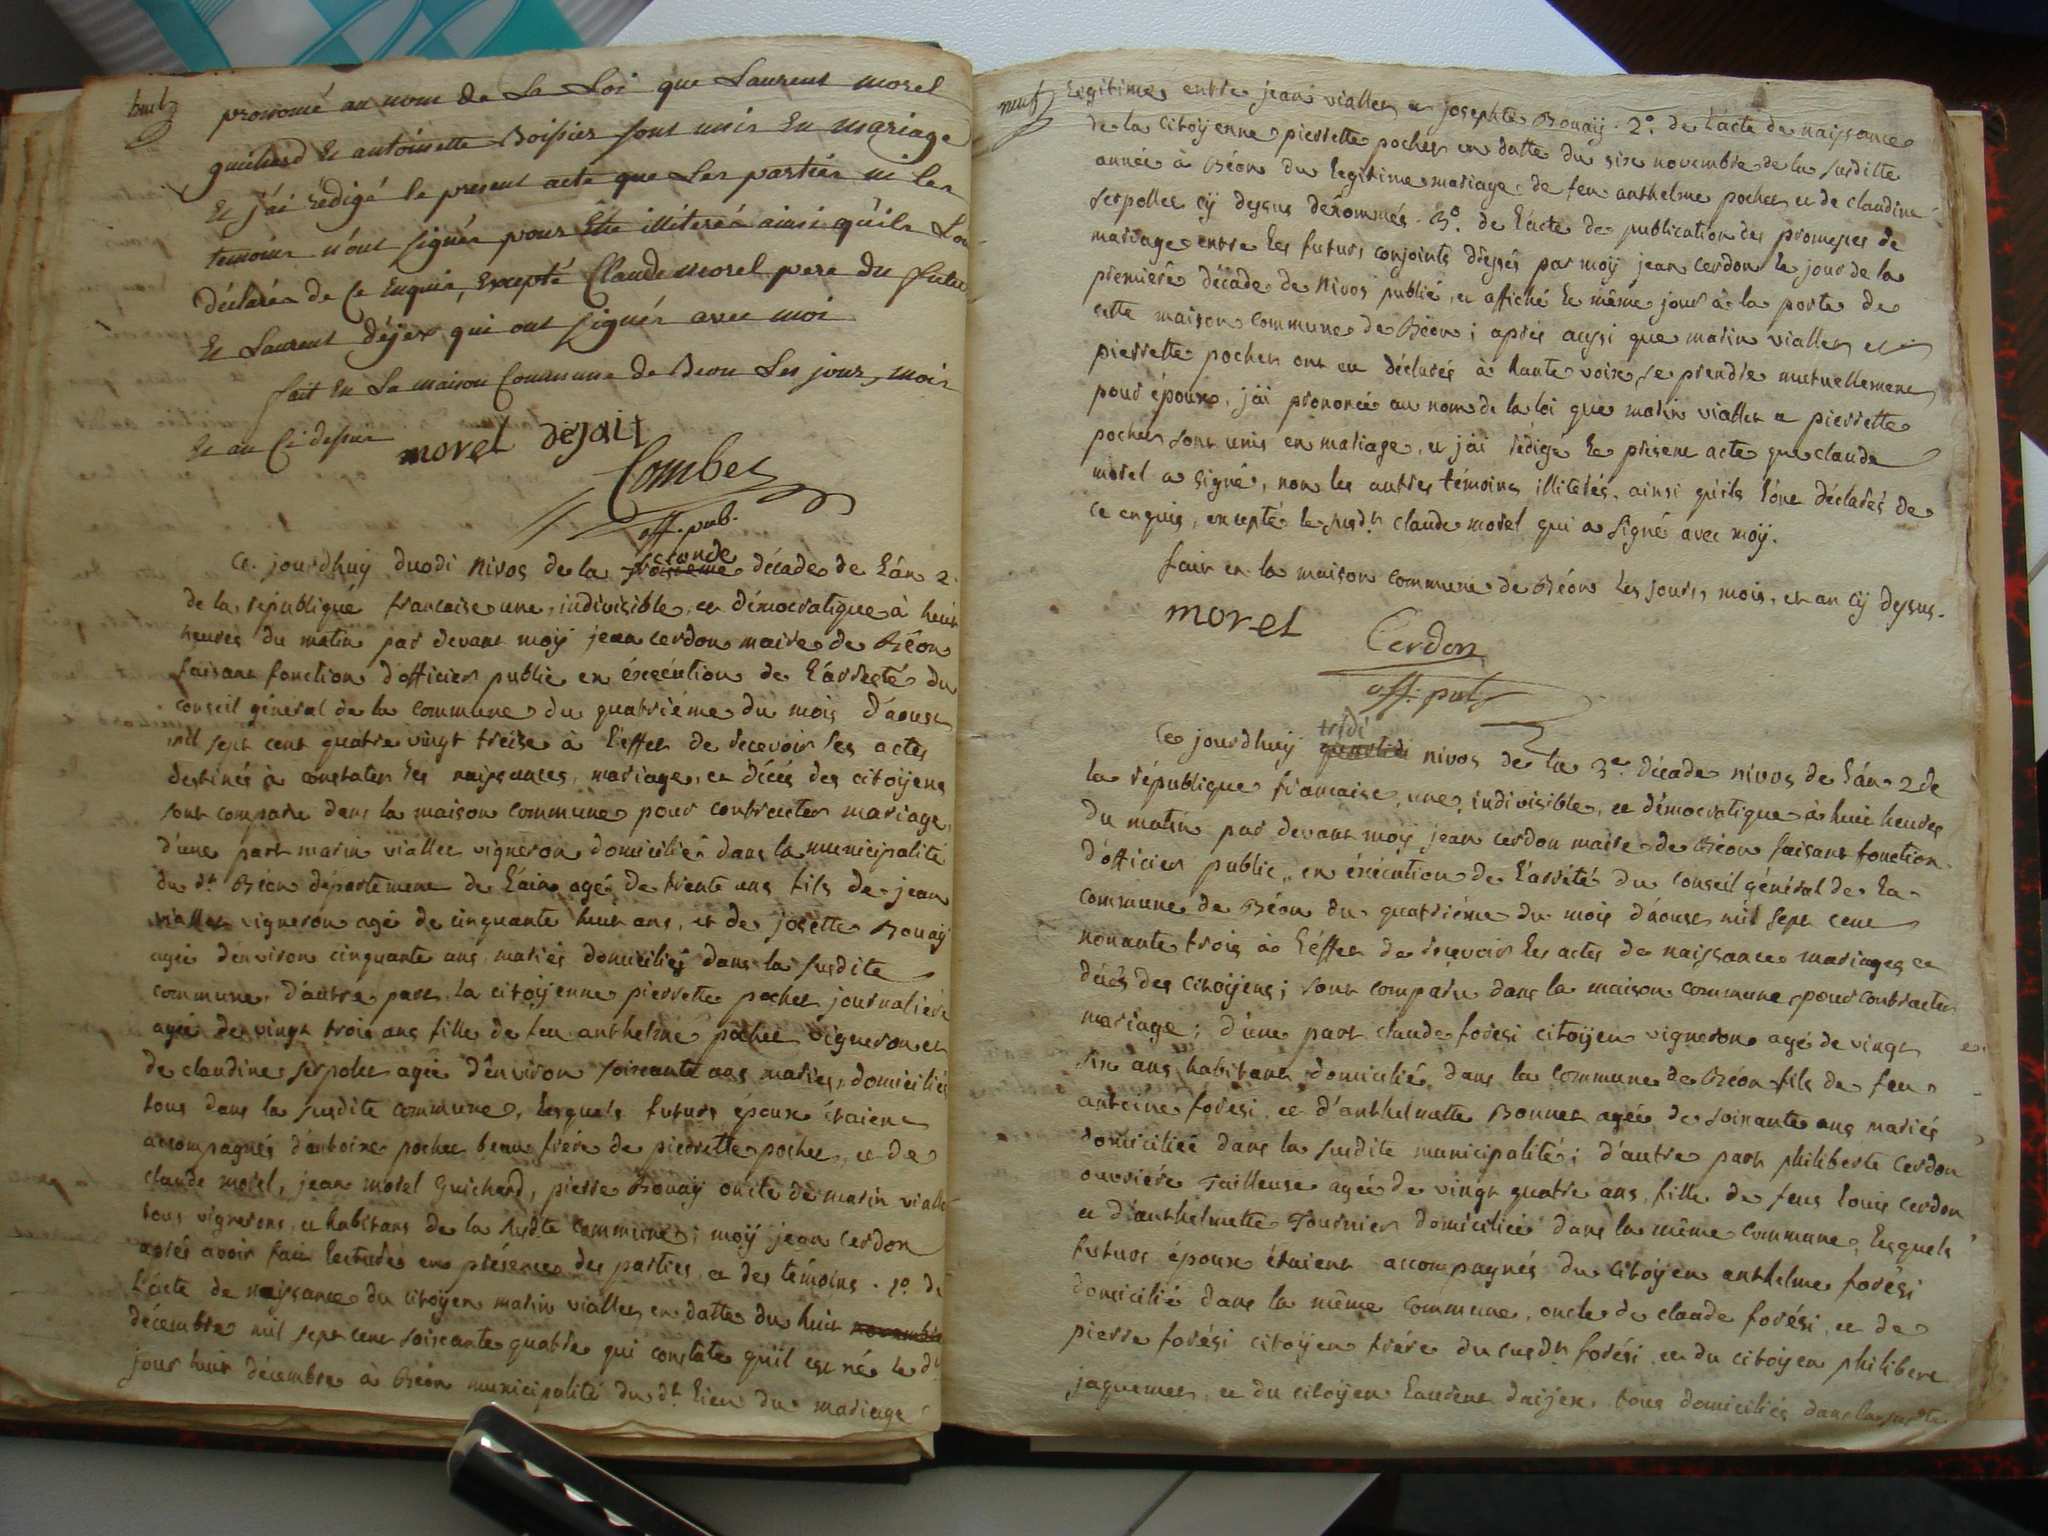 huit
prononcé au nom de La Loi que Laurent morel
guichard et antoinette Boissier sont unis En mariage
Et j'ai rédigé le present acte que Les parties ni les
temoins n'ont signés pour Etre illiterés ainsi qu'ils L'ont
déclarés de Ce Enquis, Excepté Claude morel pere du futur
Et Laurent déjex qui ont signés avec moi
fait En La maison Commune de Beon Les jour, mois
Et an Ci dessus
morel dejait
Combet
off. pub.
seconde
Ce jourdhuÿ duodi nivos de la troisieme décade de l'an 2.
de la république francaise une, indivisible, et démocratique à huit
heures du matin par devant moÿ jean cerdon maire de Béon
faisant fonction d'officier public en éxécution de l'arresté du
conseil général de la commune du quatriéme du mois d'aoust
mil sept cent quatre vingt treise à l'effet de recevoir les actes
destinés à constater les naissances, mariage, et décés des citoÿens
sont comparu dans la maison commune pour contracter mariage,
d'une part marin viallet vigneron domicilié dans la municipalité
du dt Béon département de l'ain agé de trente ans fils de jean
viallet vigneron agé de cinquante huit ans, et de josette Bouaÿ
agée d'environ cinquante ans mariés domiciliés dans la susdite
commune, d'autre part la citoÿenne pierrette pochet journaliére
agée de vingt trois ans fille de feu anthelme pochet vigneron et
de claudine serpolet agée d'environ soixante ans mariés, domiciliés
tous dans la susdite commune, lesquels futurs époux étaient
accompagnés d'antoine pochet beau frére de pierrette pochet, et de
claude morel, jean morel Guichard, pierre Bouaÿ oncle de marin viallet
tous vignerons, et habitans de la susdte commune; moÿ jean cerdon
aprés avoir fait lecture en présence des parties, et des témoins. 1o. de
l'acte de naissance du citoÿen marin viallet en datte du huit novembre
décembre mil sept cent soixante quatre qui constate qu'il est né le dt
jour huit décembre à Béon municipalité du dt lieu du mariage
neuf
legitime entre jean viallet et josephte Bouaÿ. 2o. de l'acte de naissance
de la citoÿenne pierrette pochet en datte du six novembre de la susditte
année à Béon du legitime mariage de feu anthelme pochet et de claudine
serpollet cÿ dessus dénommés. 3o. de l'acte de publication des promesses de
mariage entre les futurs conjoints dréssés par moÿ jean cerdon le jour de la
premiere décade de nivos publié, et affiché le même jour à la porte de
cette maison commune de Béon; aprés aussi que marin viallet et
pierrette pochet ont eu déclarés à haute voix, se prendre mutuellement
pour époux, j'ai prononcé au nom de la loi que marin viallet et pierrette
pochet sont unis en mariage, et j'ai rédigé le présent acte que claude
morel a signé, non les autres témoins illiterés, ainsi qu'ils l'ont déclarés de
ce enquis, excepté le susdt claude morel qui a signé avec moÿ.
fait en la maison commune de Béon les jours, mois, et an cÿ dessus.
morel
Cerdon
off. pub
tridi
Ce jourdhuÿ quartidi nivos de la 3e. décade nivos de l'an 2 de
la république francaise, une, indivisible, et démocratique à huit heures
du matin par devant moÿ jean cerdon maire de Béon faisant fonction
d'officier public, en éxécution de l'arrété du conseil général de la
commune de Béon du quatriéme du mois d'aoust mil sept cent
nonante trois à l'éffet de recevoir les actes de naissance mariages et
décés des citoÿens; sont comparu dans la maison commune pour contracter
mariage; d'une part claude forési citoÿen vigneron agé de vingt
six ans habitant domicilié dans la commune de Béon fils de feu
antoine forési et d'anthelmette Bonnet agée de soixante ans mariés
domiciliée dans la susdite municipalité; d'autre part philiberte cerdon
ouvriére Tailleuse agée de vingt quatre ans, fille de feus louis cerdon
et d'anthelmette Tournier domiciliée dans la même commune, lesquels
futurs époux étaient accompagnés du citoÿen anthelme forési
domicilié dans la même commune, oncle de claude forési, et de
pierre forési citoÿen frére du susdt forési et du citoÿen philibert
jaquemet, et du citoÿen laurent daijex tous domiciliés dans la susdte